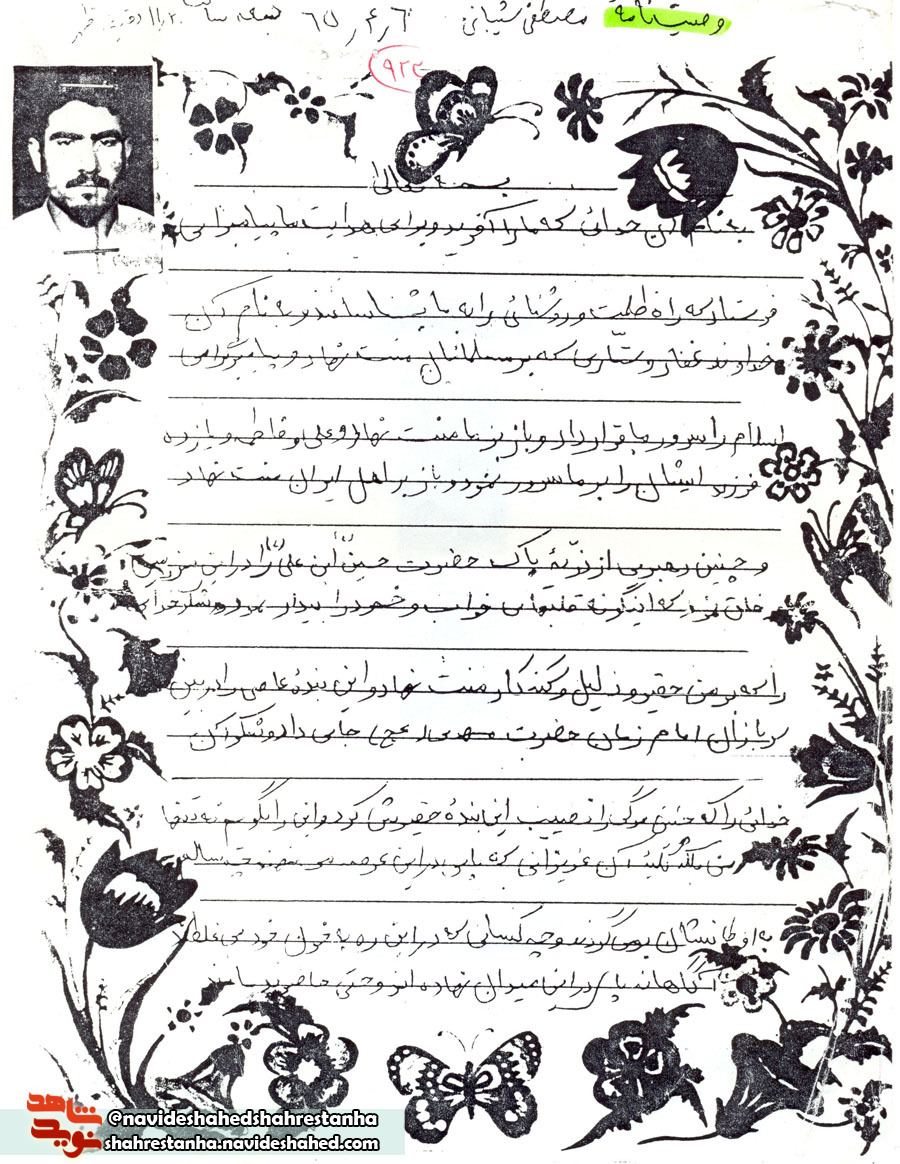 وصیت نامه مصطفی شیبانی ۶ر۴ر۶۵ جمعه ساعت ظهر
۹۲۲
بسمه تعالی
به نام آن خدائی که ما را آفرید و برای هدایت ما پیامبرانی
فرستاد که راه ظلمت و روشنائی را به ما بشناسانند و به نام آن
خداوند غفار و ستاری که بر مسلمانان منت نهاد و پیامبر گرامی
اسلام را سرور ما قرار داد و باز بر ما منت نهاد و علی و فاطمه و یازده
فرزند ایشان را بر ما سرور نمود و باز بر اهل ایران منت نهاد
و چنین رهبری از ذریّهٔ پاک حضرت حسین أبن علی (ع) را در این سرزمین
خلق نمود که اینگونه قلبهای خواب و خمود را بیدار نمود و شکر خدایی
را که بر من حقیر و ذلیل و گنه کار منت نهاد و این بندهٔ عاصی را در بین
سربازان امام زمان حضرت مهدی (عج) جایی داد و شکر آن
خدائی را که چنین مرگی را نصیب این بندهٔ حقیرش کرد و این را بگویم نه تنها
من بلکه کلیّه آن عزیزانی که پای در این عرصه می نهند چه ساله
به اوطانشان بر می گردند و چه کسانی که در این ره به خون خود می غلطند
آگاهانه پای در این میدان نهاده اند و حتی حاضر
شاهد
نوید
@navideshahedshahrestanha
shahrestanha.navideshahed.com